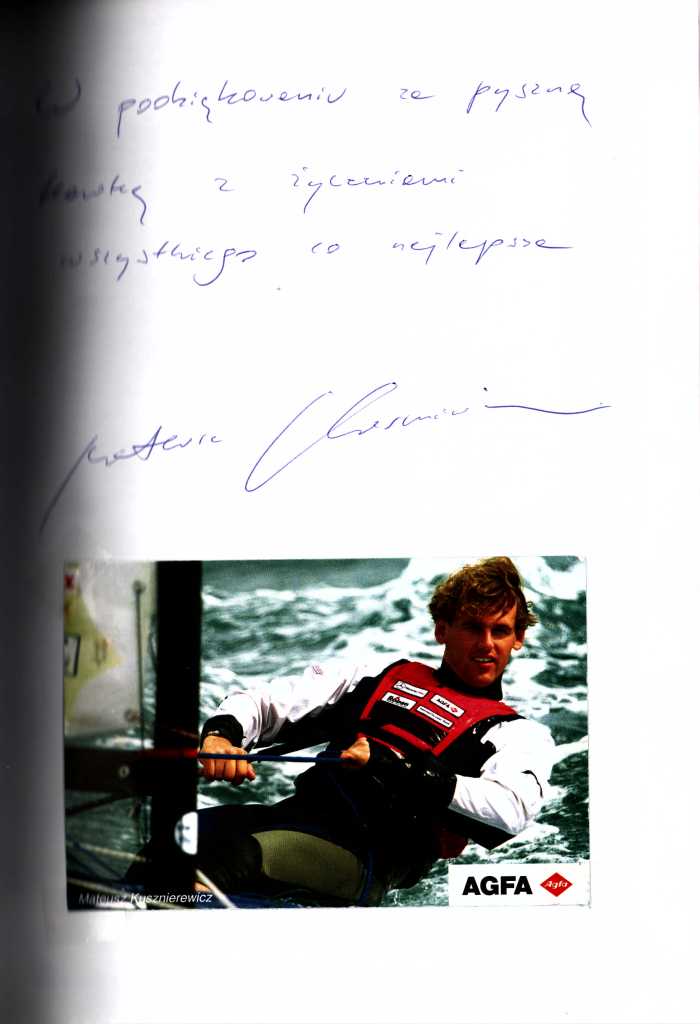 W podziękowaniu za pyszną
kawkę z życzeniami
wszystkiego co najlepsze
Mateusz Kusznierewicz
AGFA
Mateusz Kusznierewicz
AGFA Agfa